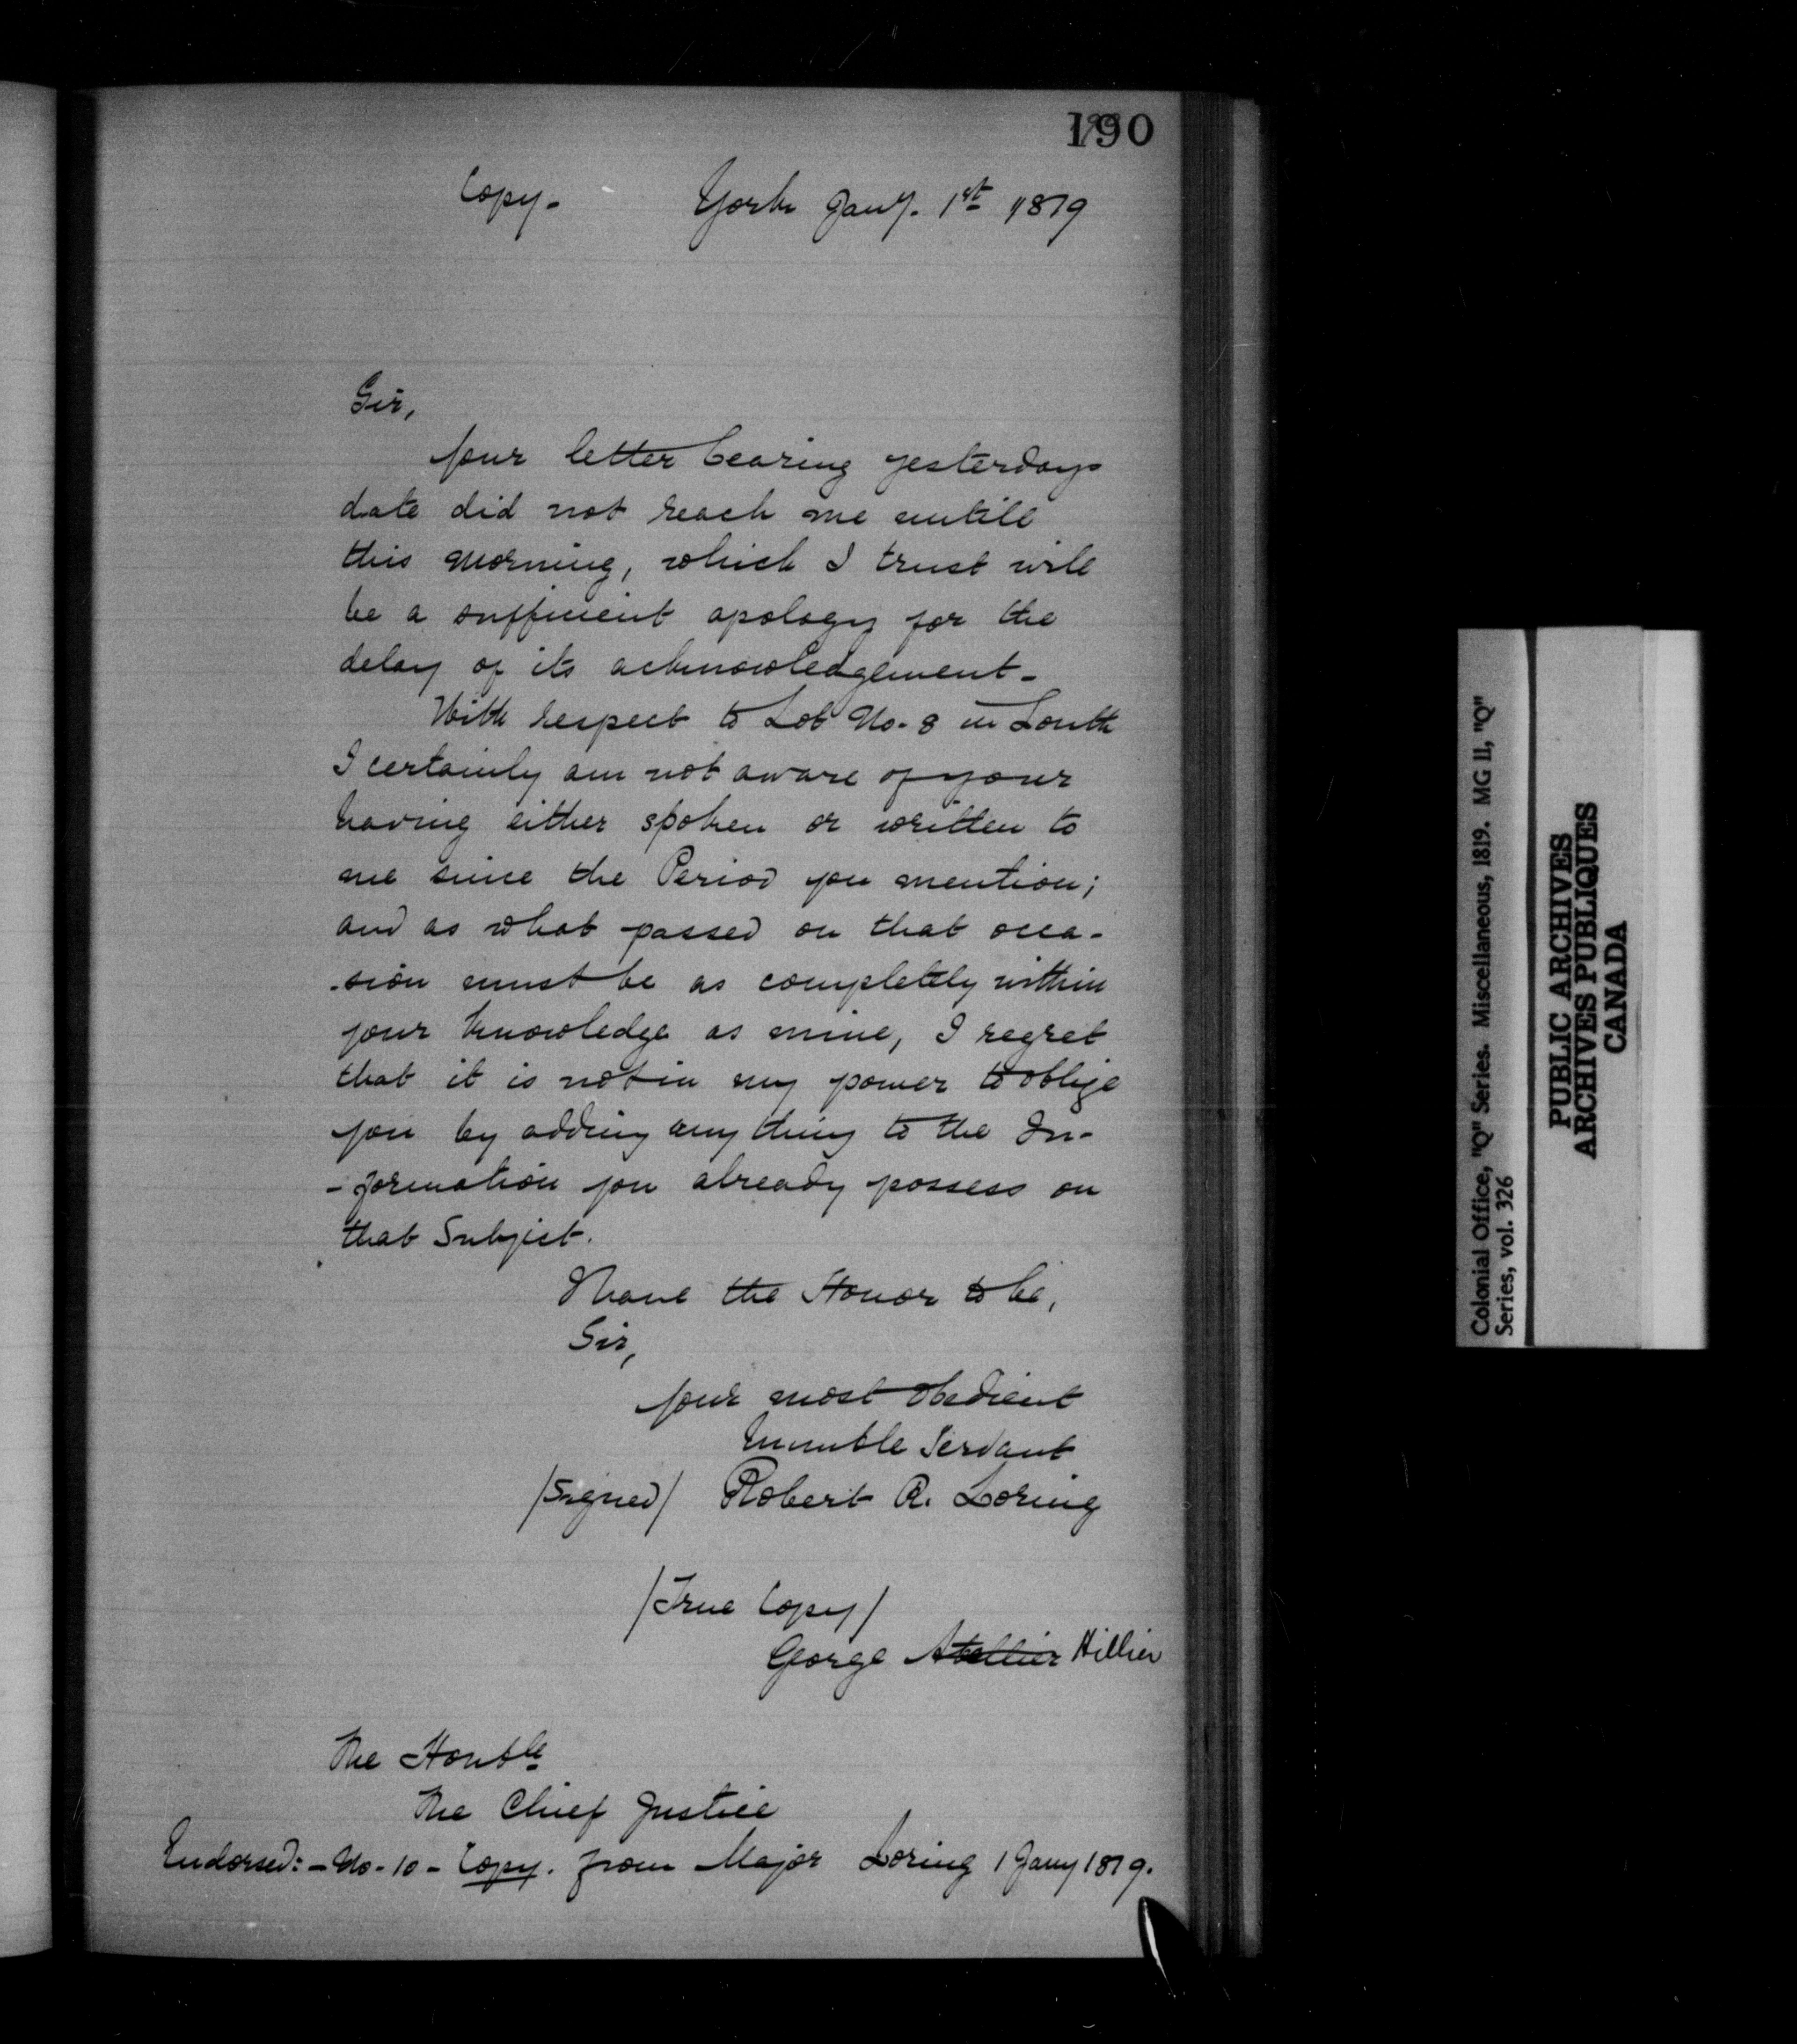 190
Copy. York Jany. 1st 1819
Sir,
Your letter bearing yesterdays
date did not reach me untill
this morning, which I trust will
be a sufficient apology for the
delay of its acknowledgement.
With respect to Lot No. 8 in Louth
I certainly am not aware of your
having either spoken or written to
me since the Period you mention;
and as what passed on that occa-
-sion must be as completely within
your knowledge as mine, I regret
that it is not in my power to oblige
you by adding any thing to the In-
-formation you already possess on
that Subject.
I have the Honor to be,
Sir,
Your most obedient
humble Servant
/Signed/ Robert R. Loring
/True Copy/
George Hillier
The Honble
The Chief Justice
Endorsed:- No. 10 - Copy. from Major Loring 1 Jany 1819.
Colonial Office, "Q" Series. Miscellaneous, 1819. MG 11, "Q"
Series, vol. 326
PUBLIC ARCHIVES
ARCHIVES PUBLIQUES
CANADA